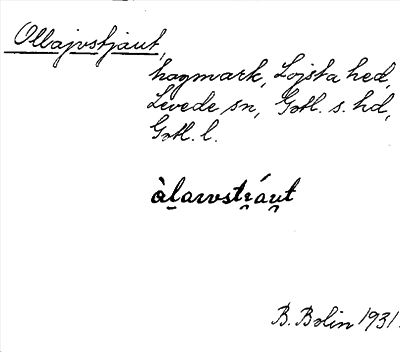 Ollajvstjaut,
hagmark, Lojsta hed,
Levede sn, Gotl. s. hd,
Gotl. l.
B. Bolin 1931.